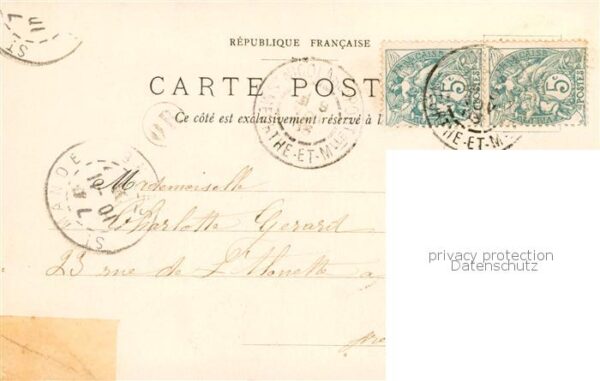 RÉPUBLIQUE FRANÇAISE
CARTE POST
Ce côté est exclusivement réservé à l
5c
POSTES
5c
POSTES
RTHE-ET-M
THE-ET-M
ST MANDÉ
Mademoiselle
Charlotte Gerard
23 rue de l'Alouette
privacy protection
Datenschutz